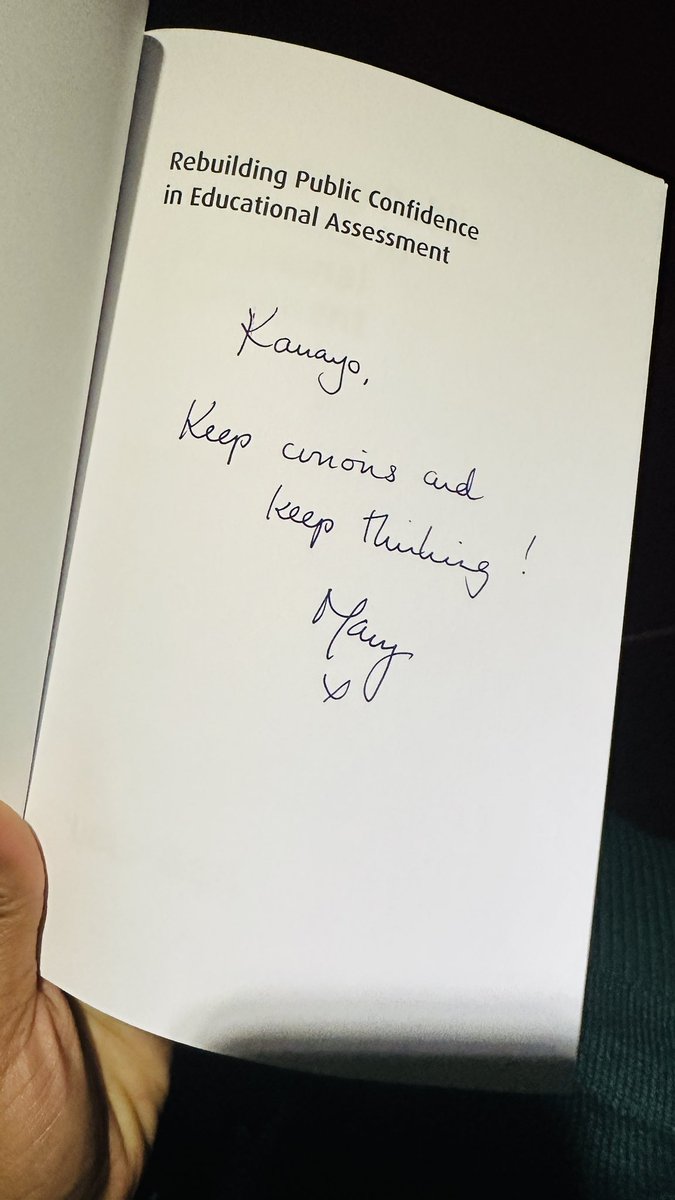 Rebuilding Public Confidence
in Educational Assessment
Kanayo,
Keep curious and
keep thinking!
Mary
x